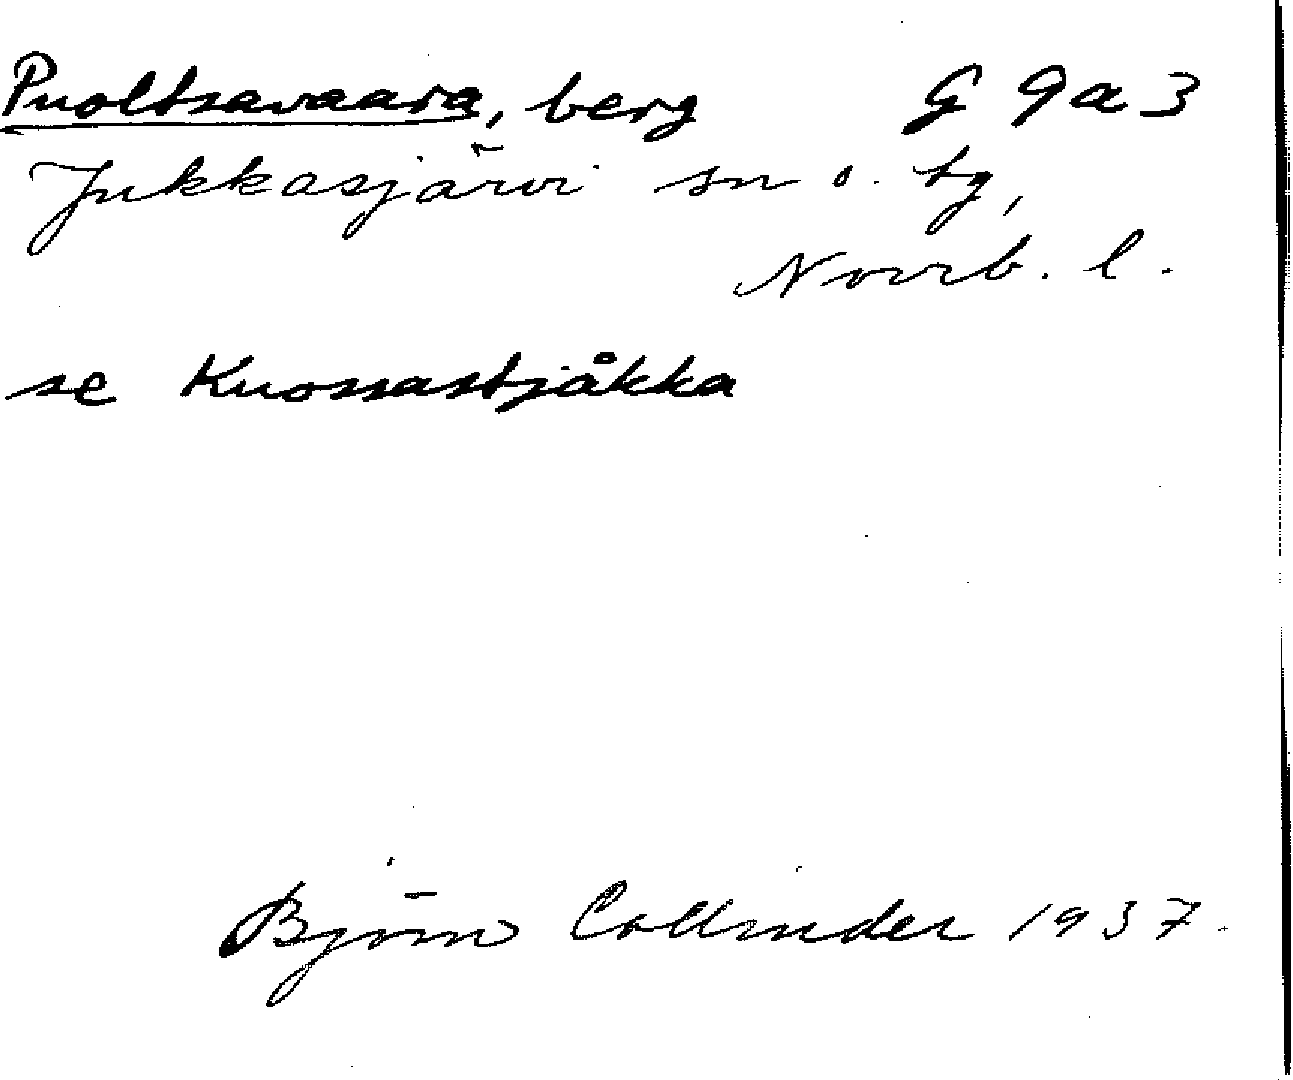 Puoltsavaara, berg G 9a3
Jukkasjärvi sn o. tg,
Norrb. l.
se Kuossastjåkka
Björn Collinder 1937.